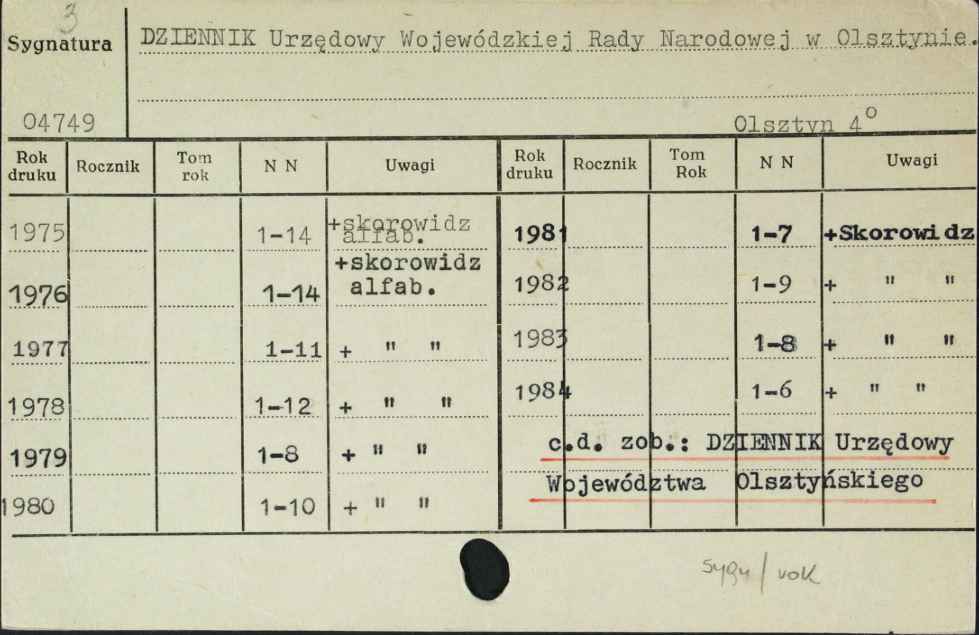 3
Sygnatura DZIENNIK Urzędowy Wojewódzkiej Rady Narodowej w Olsztynie.
04749 Olsztyn 4°
Rok druku Rocznik Tom rok N N Uwagi Rok druku Rocznik Tom Rok N N Uwagi
1975 1-14 +skorowidz alfab. 1981 1-7 +Skorowidz
1976 1-14 +skorowidz alfab. 1982 1-9 + " "
1977 1-11 + " " 1983 1-8 + " "
1978 1-12 + " " 1984 1-6 + " "
1979 1-8 + " " c.d. zob.: DZIENNIK Urzędowy
1980 1-10 + " " Województwa Olsztyńskiego
sygn/rok